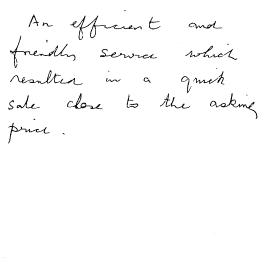 An efficient and
friendly service which
resulted in a quick
sale close to the asking
price.